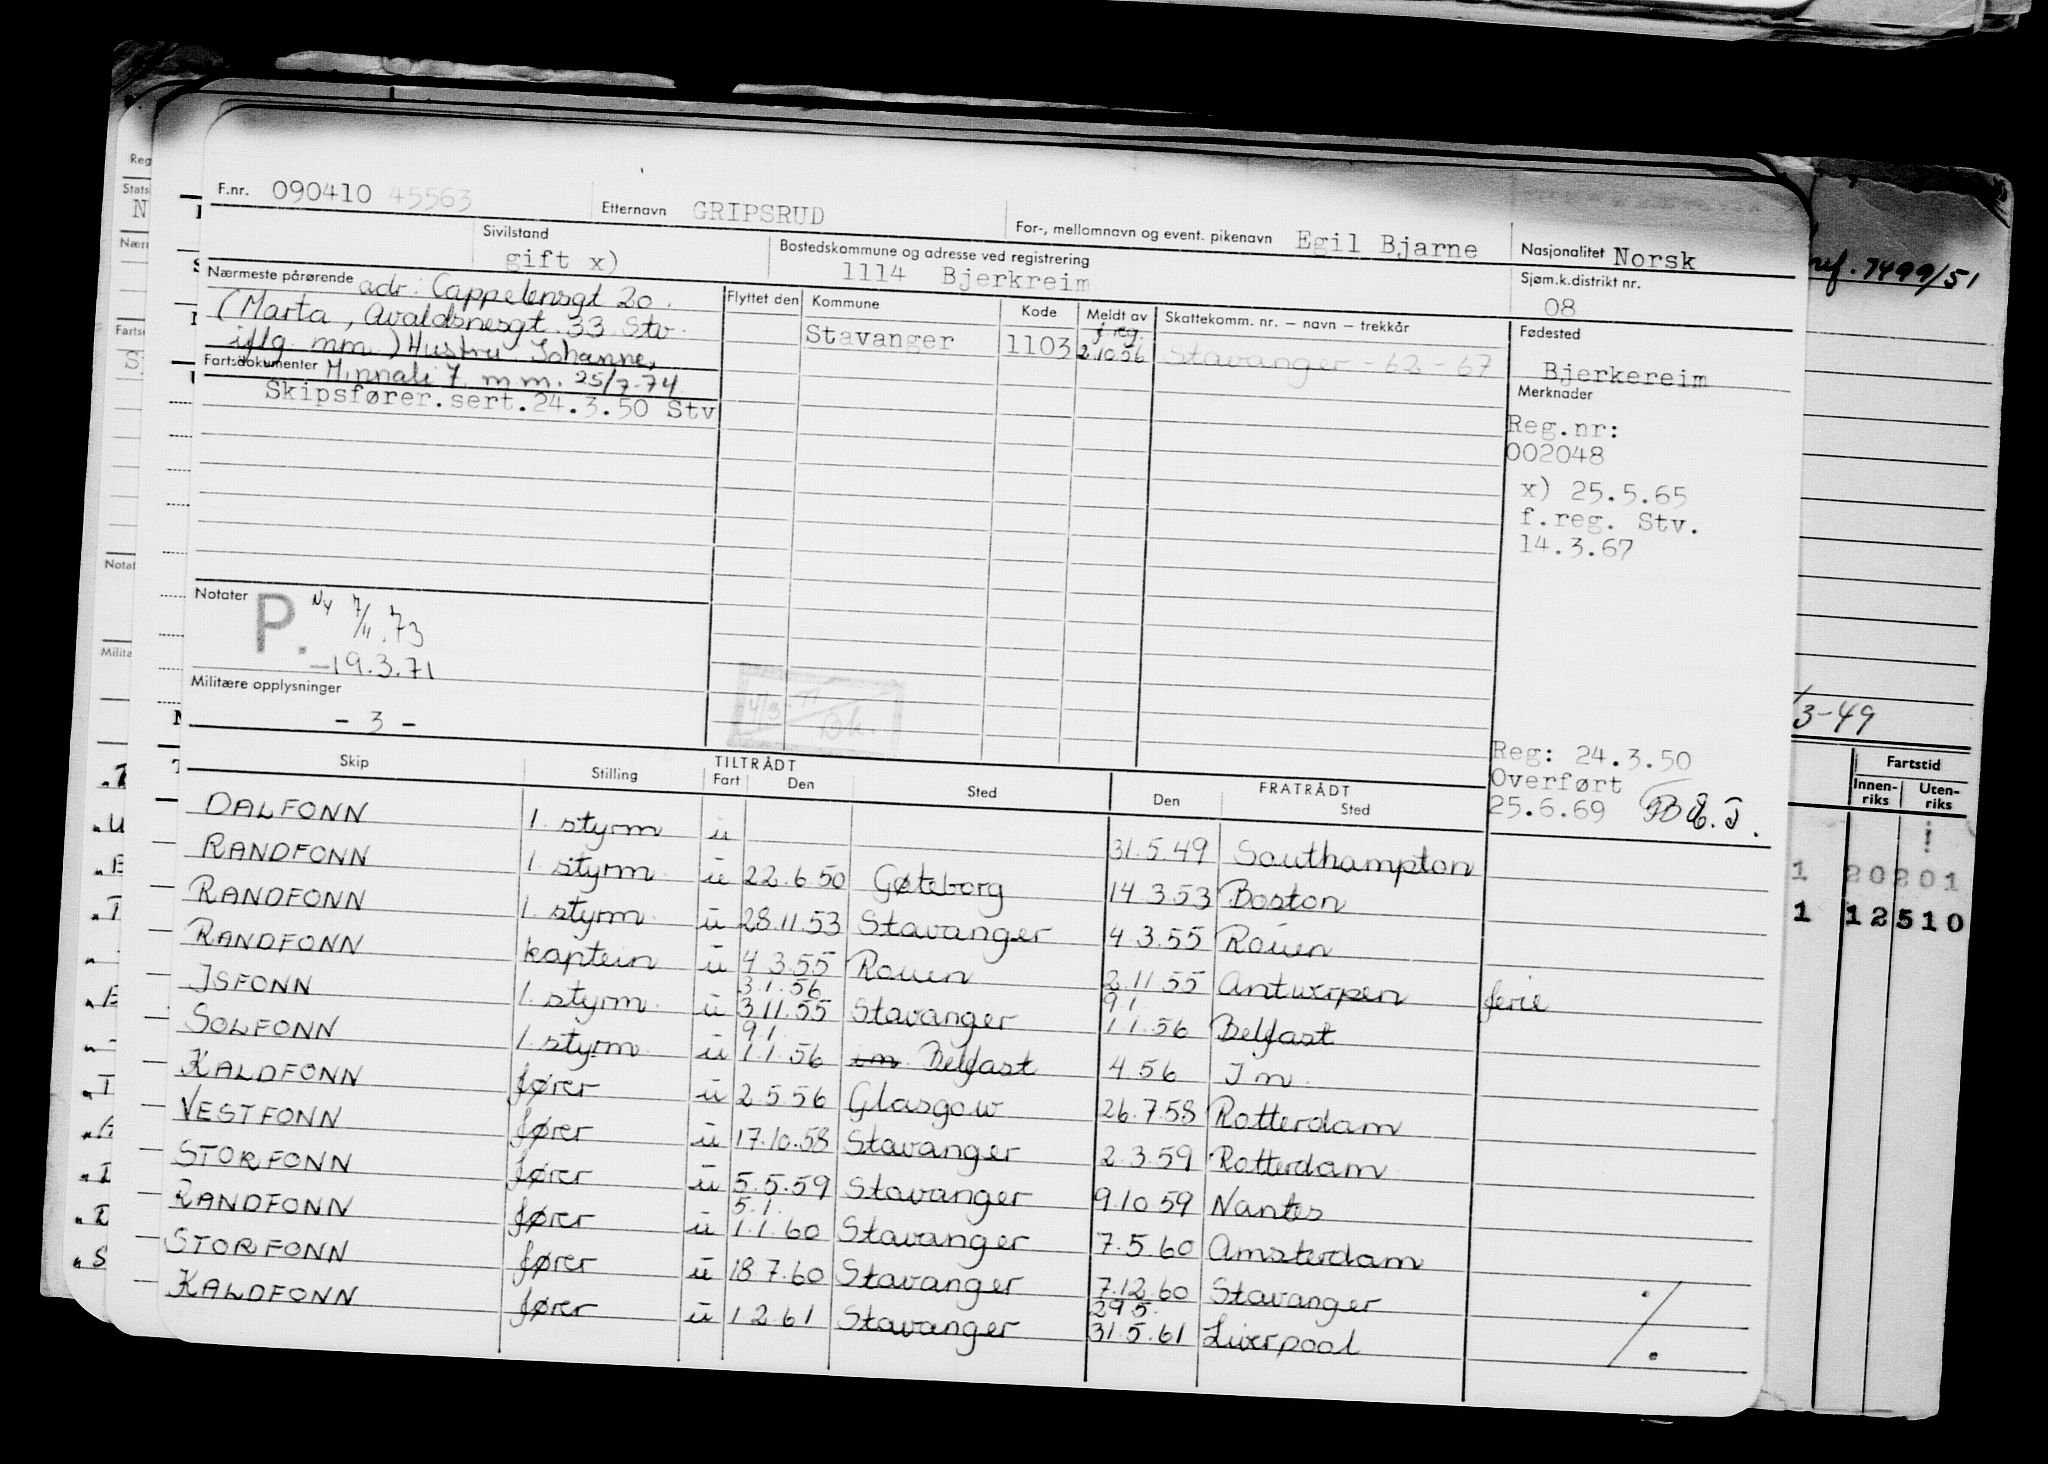 F.nr. 090410 45563 Etternavn GRIPSRUD For-, mellomnavn og event. pikenavn Egil Bjarne Nasjonalitet Norsk
Sivilstand gift x) Bostedskommune og adresse ved registrering 1114 Bjerkreim Sjøm.k.distrikt nr. 08
Nærmeste pårørende adr: Cappelensgt 20.
(Marta, Avaldsnesgt. 33 Stv.
iflg. mm.) Hustru Johanne,
Minnali 7 m m. 25/7-74
Flyttet den Kommune Kode Meldt av Skattekomm. nr. – navn – trekkår
Stavanger 1103 f. reg. 2.10.56 Stavanger - 62 - 67
Fødested
Bjerkereim
Fartsdokumenter
Skipsfører.sert.24.3.50 Stv
Merknader
Reg.nr:
002048
x) 25.5.65
f.reg. Stv.
14.3.67
Notater
P. Ny 7/11.73
-19.3.71
Militære opplysninger
- 3 -
Reg: 24.3.50
Overført
25.6.69
Skip Stilling TILTRÅDT Fart Den Sted FRATRÅDT Den Sted
DALFONN 1. styrm u 31.5.49 Southampton
RANDFONN 1. styrm. u 22.6.50 Gøteborg 14.3.53 Boston
RANDFONN 1. styrm. u 28.11.53 Stavanger 4.3.55 Rouen
RANDFONN kaptein u 4.3.55 Rouen 2.11.55 Antwerpen ferie
ISFONN 1. styrm. u 3.1.56 3.11.55 Stavanger 9.1 1.1.56 Belfast
SOLFONN 1. styrm. u 9.1 1.1.56 im. Belfast 4.56 Im.
KALDFONN fører u 2.5.56 Glasgow 26.7.58 Rotterdam
VESTFONN fører u 17.10.58 Stavanger 2.3.59 Rotterdam
STORFONN fører u 5.5.59 Stavanger 9.10.59 Nantes
RANDFONN fører u 5.1. 1.1.60 Stavanger 7.5.60 Amsterdam
STORFONN fører u 18.7.60 Stavanger 7.12.60 Stavanger
KALDFONN fører u 1.2.61 Stavanger 29.5. 31.5.61 Liverpool
ref. 7499/51
/3-49
Fartstid
Innen-riks Uten-riks
1 20201
1 12510